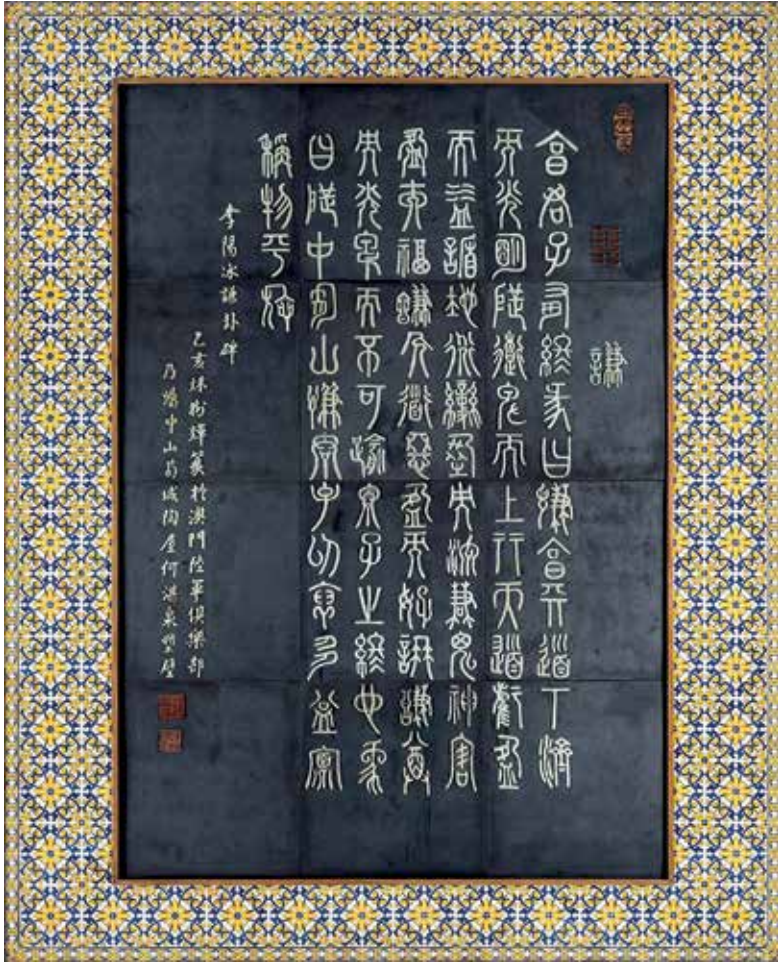 謙
亨君子有終彖曰謙亨天道下濟
而光明地道卑而上行天道虧盈
而益謙地道變盈而流謙鬼神害
盈而福謙人道惡盈而好謙謙尊
而光卑而不可踰君子之終也象
曰地中有山謙君子以裒多益寡
稱物平施
李陽冰謙卦碑
乙亥林 篆於澳門陸軍俱樂部
乃倩中山菊城陶屋何湛泉塑壁